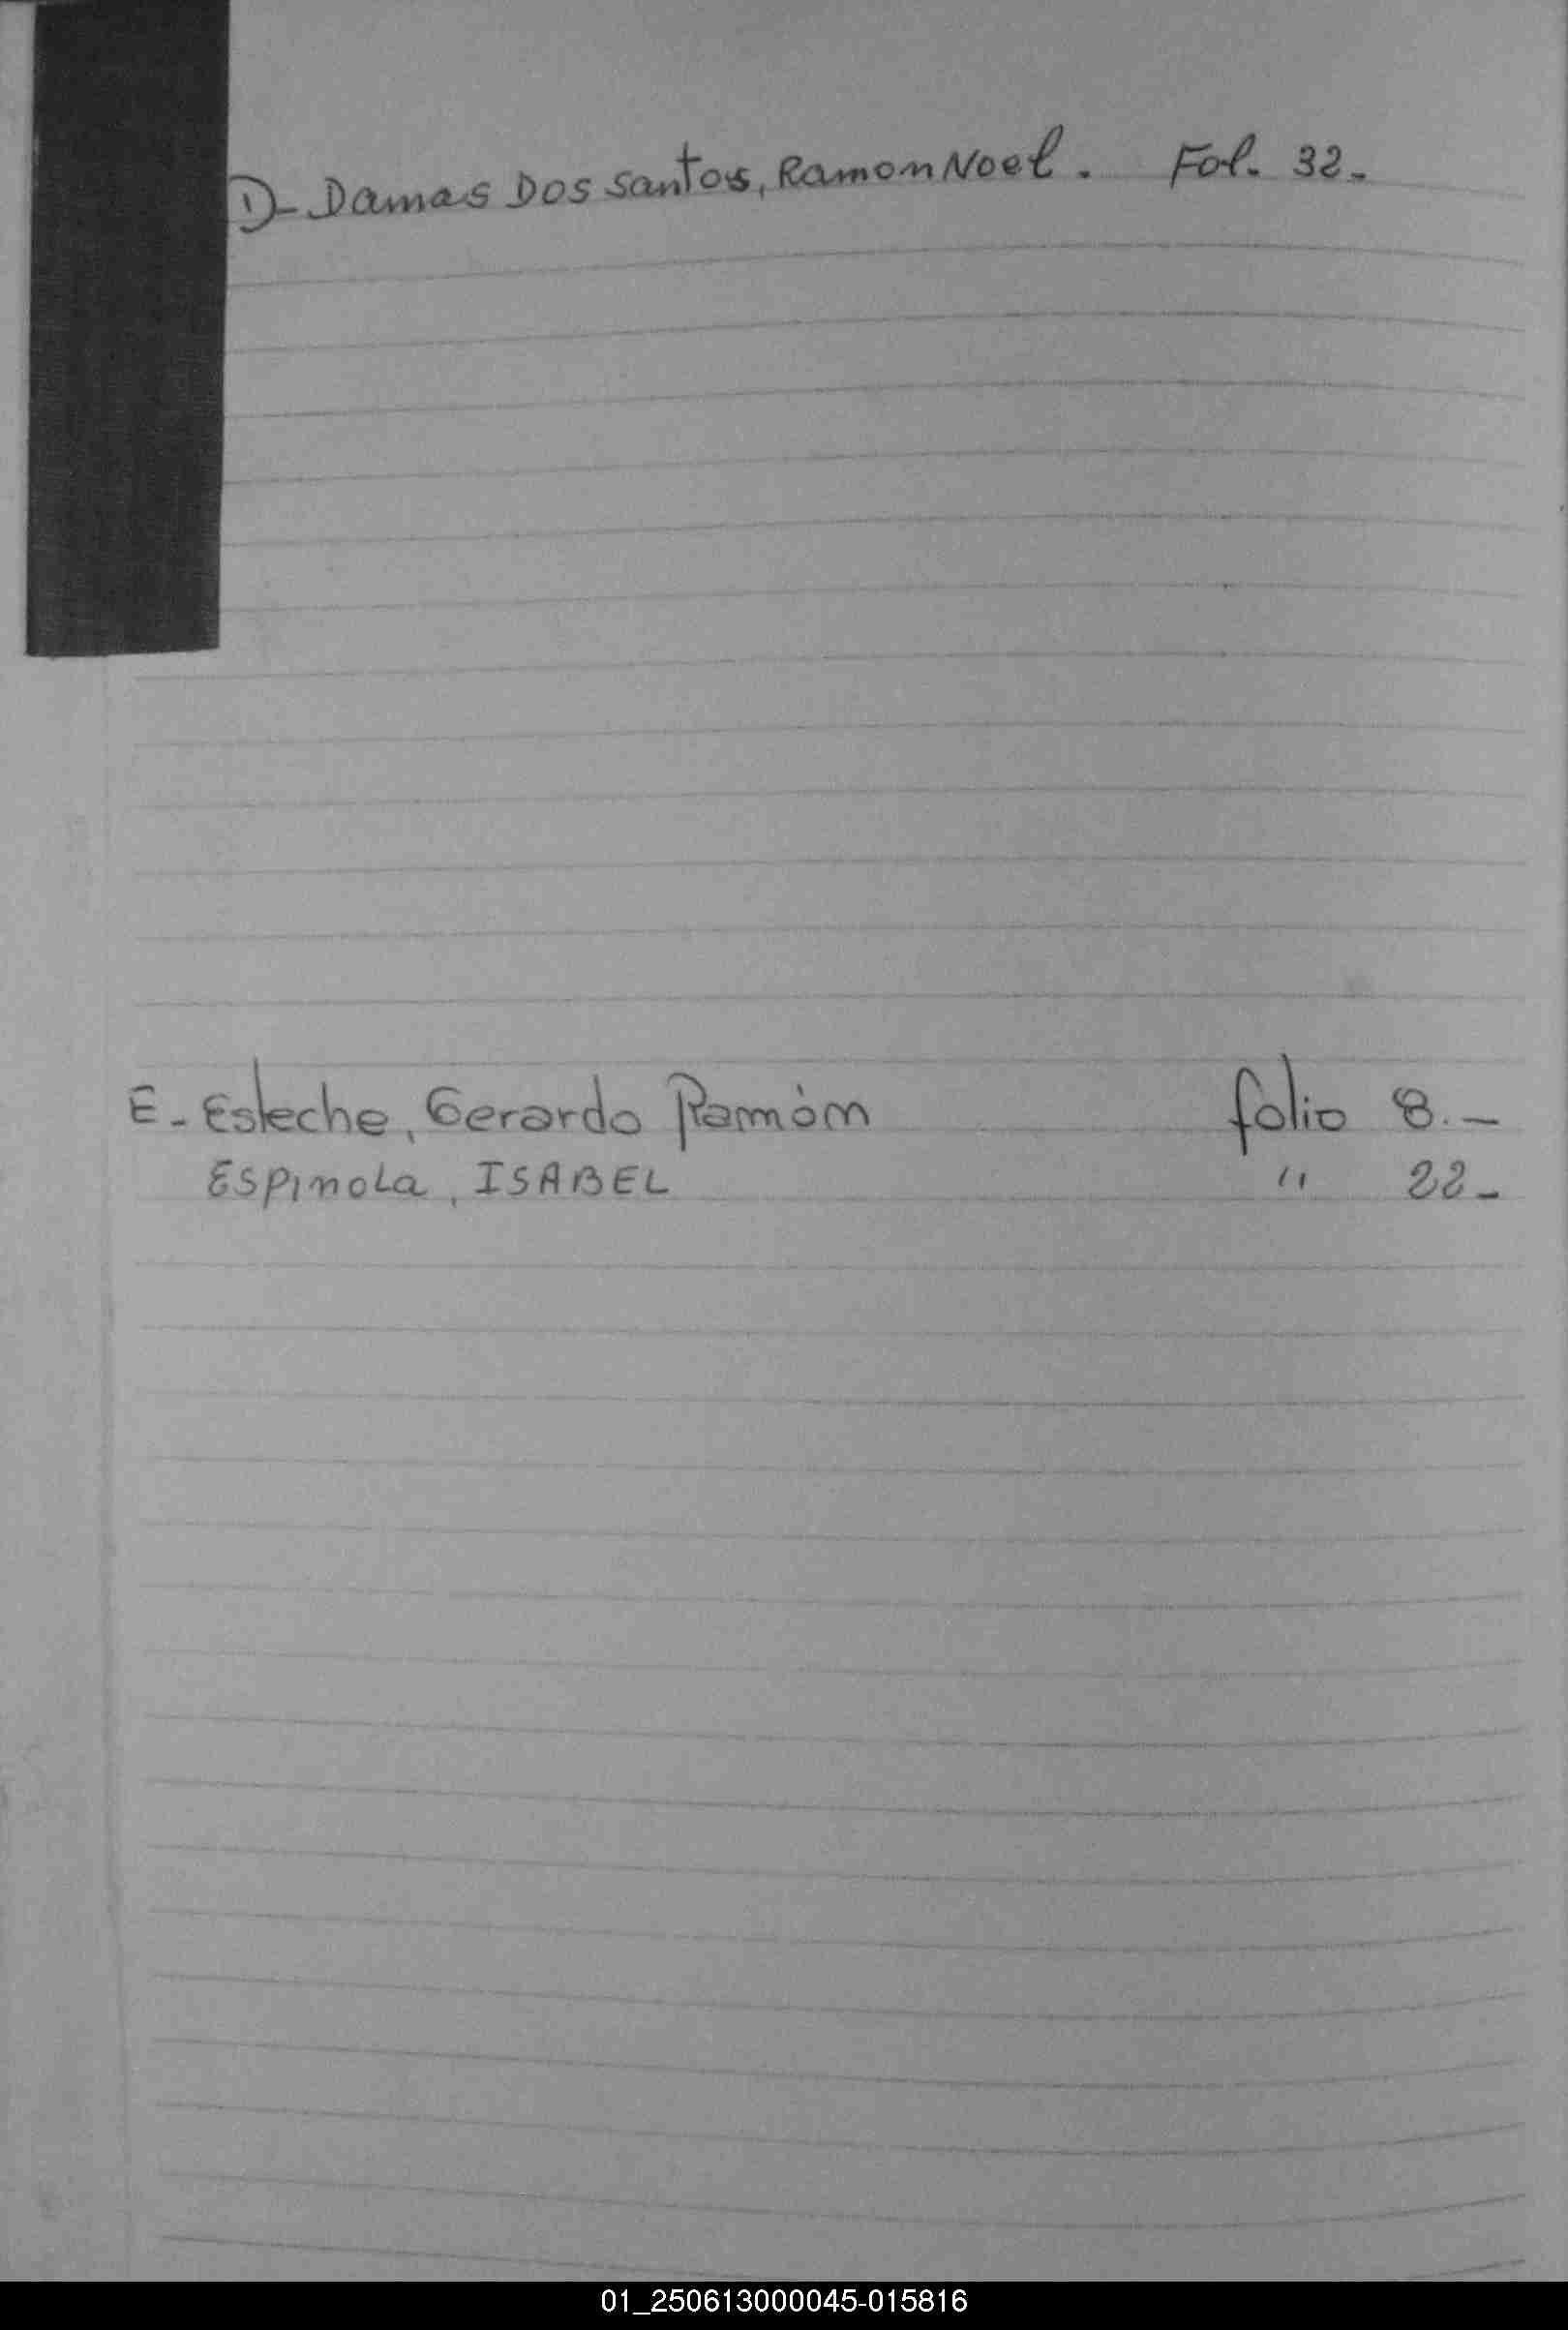 D- Damas Dos Santos, Ramon Noel. Fol. 32-
E- Esteche, Gerardo Ramón folio 8.-
ESPINOLA, ISABEL " 22-
01_250613000045-015816